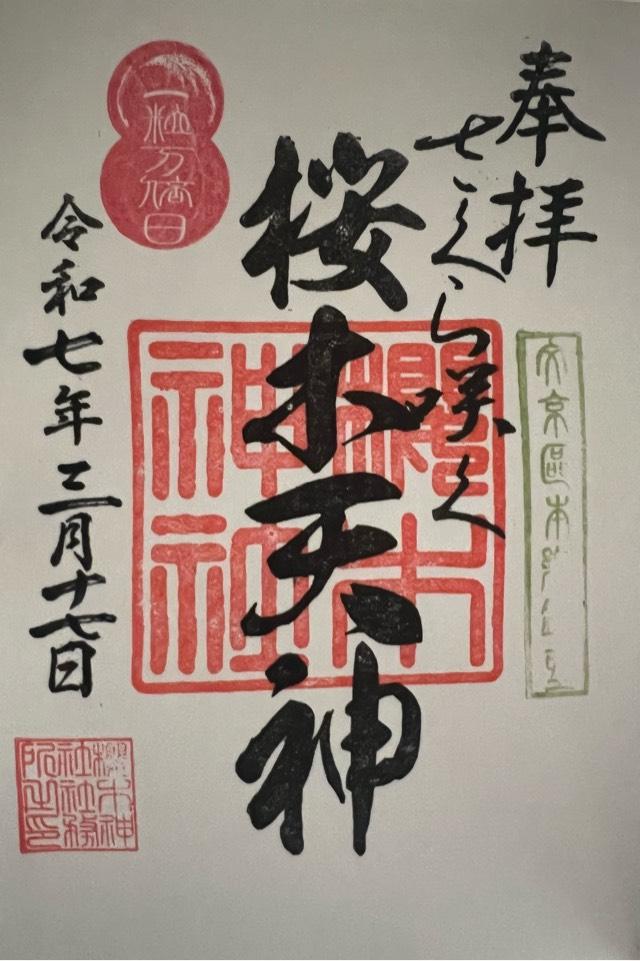 奉拝
さくら咲く
文京區本
桜木天神
櫻木
神社
一粒万倍日
令和七年三月十七日
櫻木神
社社務
所之印